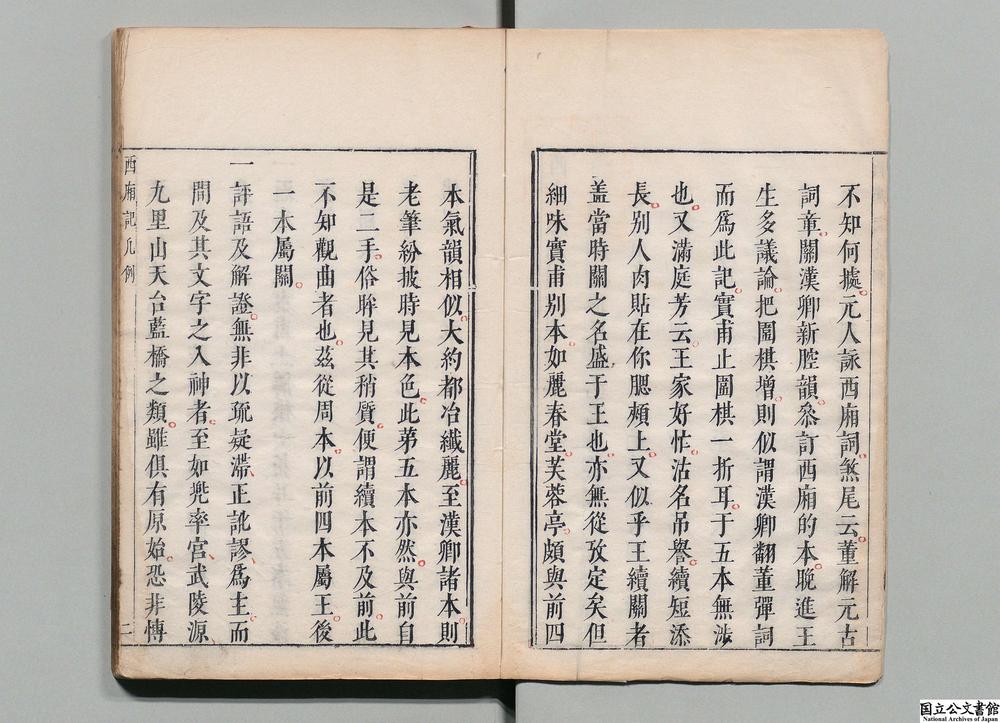 不知何據元人詠西廂詞煞尾云董解元古
詞章關漢卿新腔韻叅訂西廂的本晚進王
生多議論把圍棋增則似謂漢卿翻董彈詞
而爲此記實甫止圍棋一折耳于五本無涉
也又滿庭芳云王家好忙沽名吊譽續短添
長別人肉貼在你腮頰上又似乎王續關者
盖當時關之名盛于王也亦無從攷定矣但
細味實甫別本如麗春堂芙蓉亭頗與前四
本氣韻相似大約都冶纖麗至漢卿諸本則
老筆紛披時見本色此第五本亦然與前自
是二手俗眸見其稍質便謂續本不及前此
不知觀曲者也茲從周本以前四本屬王後
一本屬關
一評語及解證無非以疏疑滯正訛謬爲主而
間及其文字之入神者至如兜率宮武陵源
九里山天台藍橋之類雖俱有原始恐非博
西廂記凡例
二
国立公文書館
National Archives of Japan